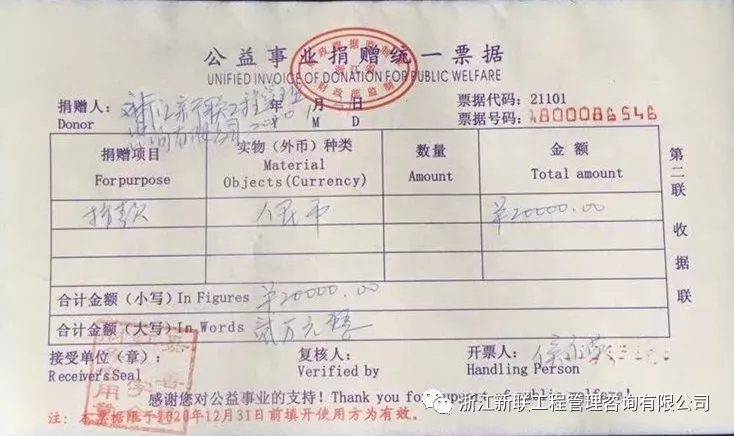 公益事业捐赠统一票据
UNIFIED INVOICE OF DONATION FOR PUBLIC WELFARE
捐赠人: 浙江新联工程管理 年 月 日 票据代码: 21101
Donor 咨询有限公司 2020 Y M D 票据号码: 1800086546
捐赠项目 实物（外币）种类 数量 金 额
For purpose Material Objects(Currency) Amount Total amount
捐款 人民币 ¥20000.00
合计金额（小写）In Figures ¥20000.00
合计金额（大写）In Words 贰万元整
第二联 收据联
接受单位（章）: 复核人: 开票人:
Receiver's Seal Verified by Handling Person
感谢您对公益事业的支持! Thank you for support of public welfare!
注: 本票据限于2020年12月31日前填开使用方为有效。
浙江新联工程管理咨询有限公司